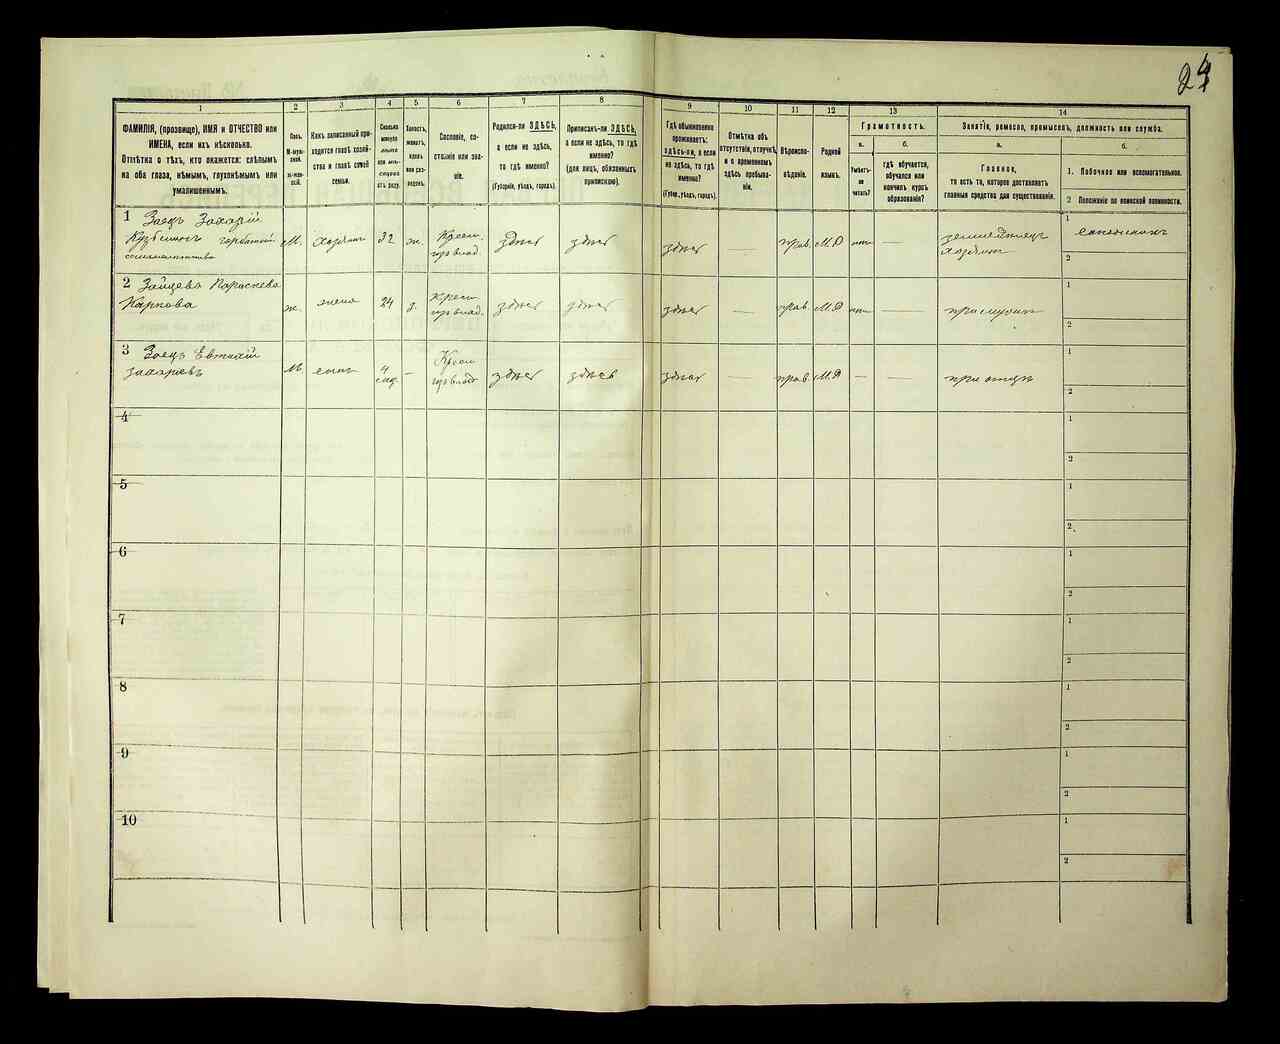 24
1 2 3 4 5 6 7 8 9 10 11 12 13 14
ФАМИЛІЯ, (прозвище), ИМЯ и ОТЧЕСТВО или
ИМЕНА, если ихъ нѣсколько.
Отмѣтка о тѣхъ, кто окажется: слѣпымъ
на оба глаза, нѣмымъ, глухонѣмымъ или
умалишеннымъ.
Полъ.
М-муж-
ской.
Ж-жен-
скій.
Какъ записанный при-
ходится главѣ хозяй-
ства и главѣ своей
семьи.
Сколько
минуло
лѣтъ
или мѣ-
сяцевъ
отъ роду.
Холостъ,
женатъ,
вдовъ
или раз-
веденъ.
Сословіе, со-
стояніе или зва-
ніе.
Родился-ли ЗДѢСЬ,
а если не здѣсь,
то гдѣ именно?
(Губернія, уѣздъ, городъ).
Приписанъ-ли ЗДѢСЬ,
а если не здѣсь, то гдѣ
именно?
(для лицъ, обязанныхъ
припискою).
Гдѣ обыкновенно
проживаетъ:
здѣсь-ли, а если
не здѣсь, то гдѣ
именно?
(Губернія, уѣздъ, городъ).
Отмѣтка объ
отсутствіи, отлучкѣ
и о временномъ
здѣсь пребыва-
ніи.
Вѣроиспо-
вѣданіе.
Родной
языкъ.
Грамотность.
а. б.
Умѣетъ-
ли
читать?
гдѣ обучается,
обучался или
кончилъ курсъ
образованія?
Занятіе, ремесло, промыселъ, должность или служба.
а. б.
Главное,
то есть то, которое доставляетъ
главныя средства для существованія.
1. Побочное или вспомогательное.
2 Положеніе по воинской повинности.
1 Заецъ Захарій
М. хозяинъ 32 ж. Крест. здѣсь здѣсь здѣсь — прав. М.Р нѣтъ — земледѣлецъ
хозяинъ
2 Зайцева Параскева
Карпова
ж. жена 24 з. Крест. здѣсь здѣсь здѣсь — прав. М.Р нѣтъ — при мужѣ
3 Заецъ Евтихій
Захаріевъ
М. сынъ 4 — Крест. здѣсь здѣсь здѣсь — прав. М.Р — — при отцѣ
4
5
6
7
8
9
10
1
2
1
2
1
2
1
2
1
2
1
2
1
2
1
2
1
2
1
2